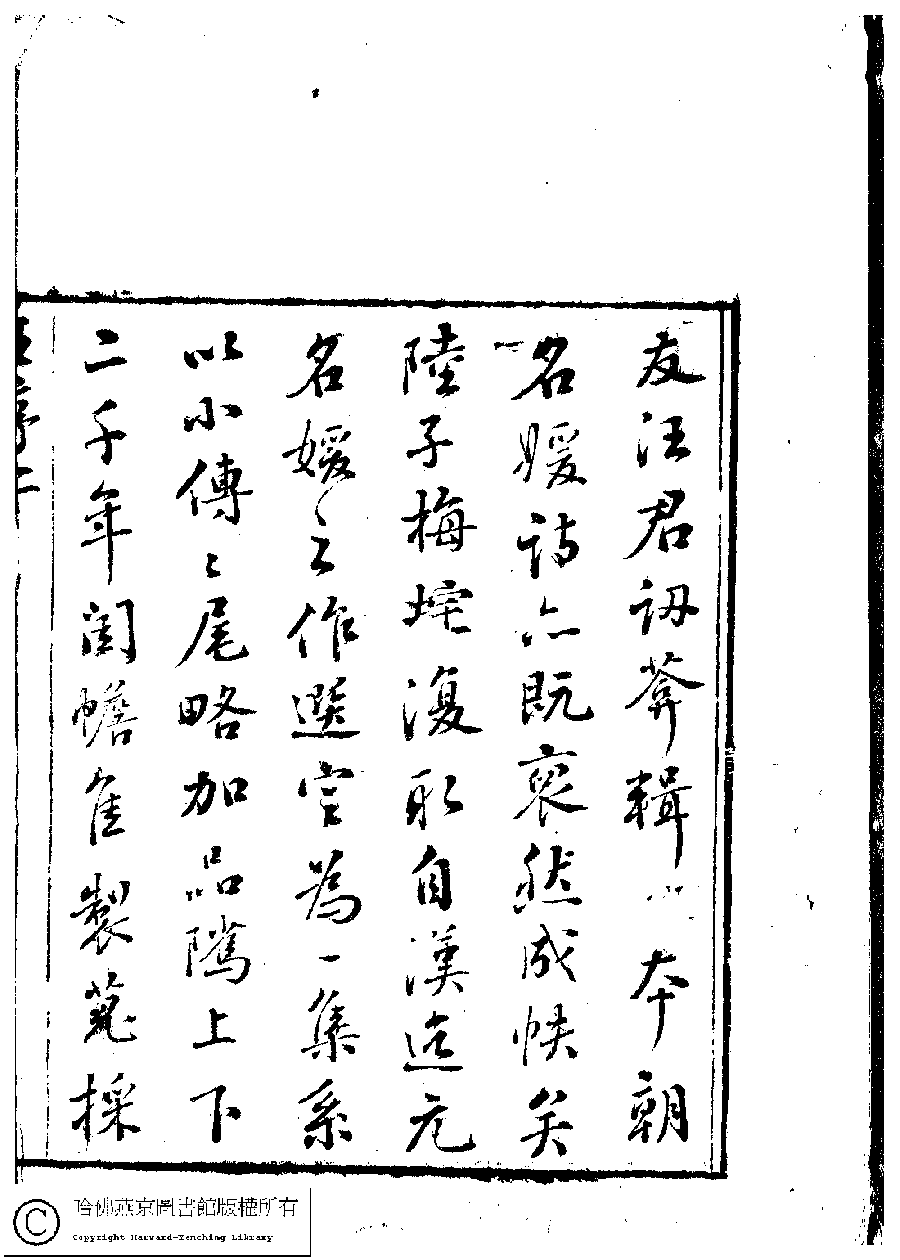 友汪君訒葊輯 本朝
名媛詩亦既裒然成帙矣
陸子梅垞復取自漢迄元
名媛之作選定為一集系
以小傳〻尾略加品隲上下
二千年閨幨隹製蒐採
哈佛燕京圖書館版權所有
Copyright Harvard-Yenching Library